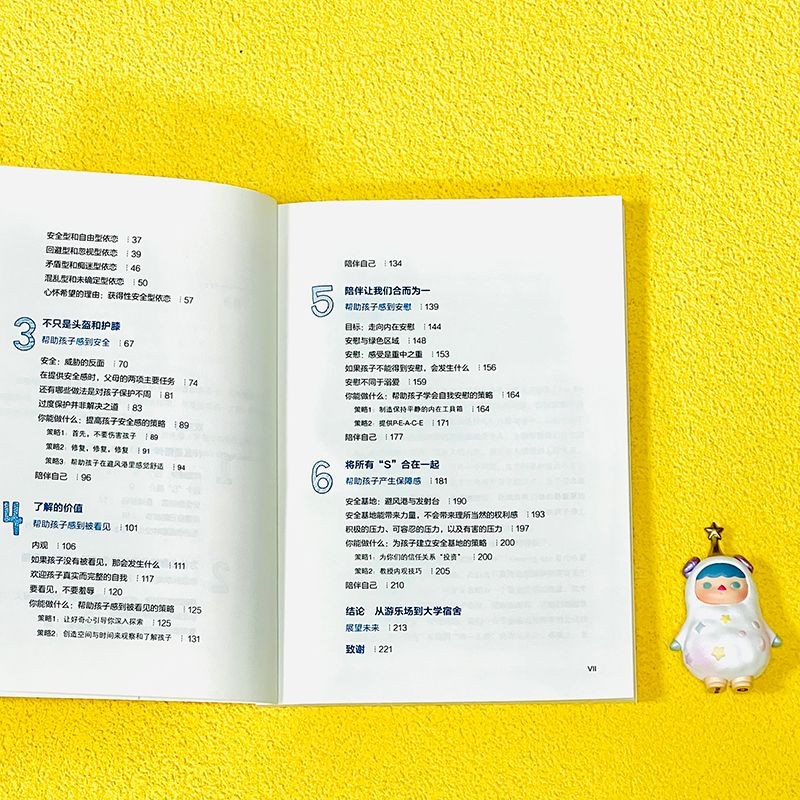 安全型和自由型依恋 37
回避型和忽视型依恋 39
矛盾型和痴迷型依恋 46
混乱型和未确定型依恋 50
心怀希望的理由：获得性安全型依恋 57
3 不只是头盔和护膝
帮助孩子感到安全 67
安全：威胁的反面 70
在提供安全感时，父母的两项主要任务 74
还有哪些做法是对孩子保护不周 81
过度保护并非解决之道 83
你能做什么：提高孩子安全感的策略 89
策略1：首先，不要伤害孩子 89
策略2：修复，修复，修复 91
策略3：帮助孩子在避风港里感觉舒适 94
陪伴自己 96
4 了解的价值
帮助孩子感到被看见 101
内观 106
如果孩子没有被看见，那会发生什么 111
欢迎孩子真实而完整的自我 117
要看见，不要羞辱 120
你能做什么：帮助孩子感到被看见的策略 125
策略1：让好奇心引导你深入探索 125
策略2：创造空间与时间来观察和了解孩子 131
陪伴自己 134
5 陪伴让我们合而为一
帮助孩子感到安慰 139
目标：走向内在安慰 144
安慰与绿色区域 148
安慰：感受是重中之重 153
如果孩子不能得到安慰，会发生什么 156
安慰不同于溺爱 159
你能做什么：帮助孩子学会自我安慰的策略 164
策略1：制造保持平静的内在工具箱 164
策略2：提供P-E-A-C-E 171
陪伴自己 177
6 将所有“S”合在一起
帮助孩子产生保障感 181
安全基地：避风港与发射台 190
安全基地能带来力量，不会带来理所当然的权利感 193
积极的压力、可容忍的压力，以及有害的压力 197
你能做什么：为孩子建立安全基地的策略 200
策略1：为你们的信任关系“投资” 200
策略2：教授内观技巧 205
陪伴自己 210
结论 从游乐场到大学宿舍
展望未来 213
致谢 221
VII